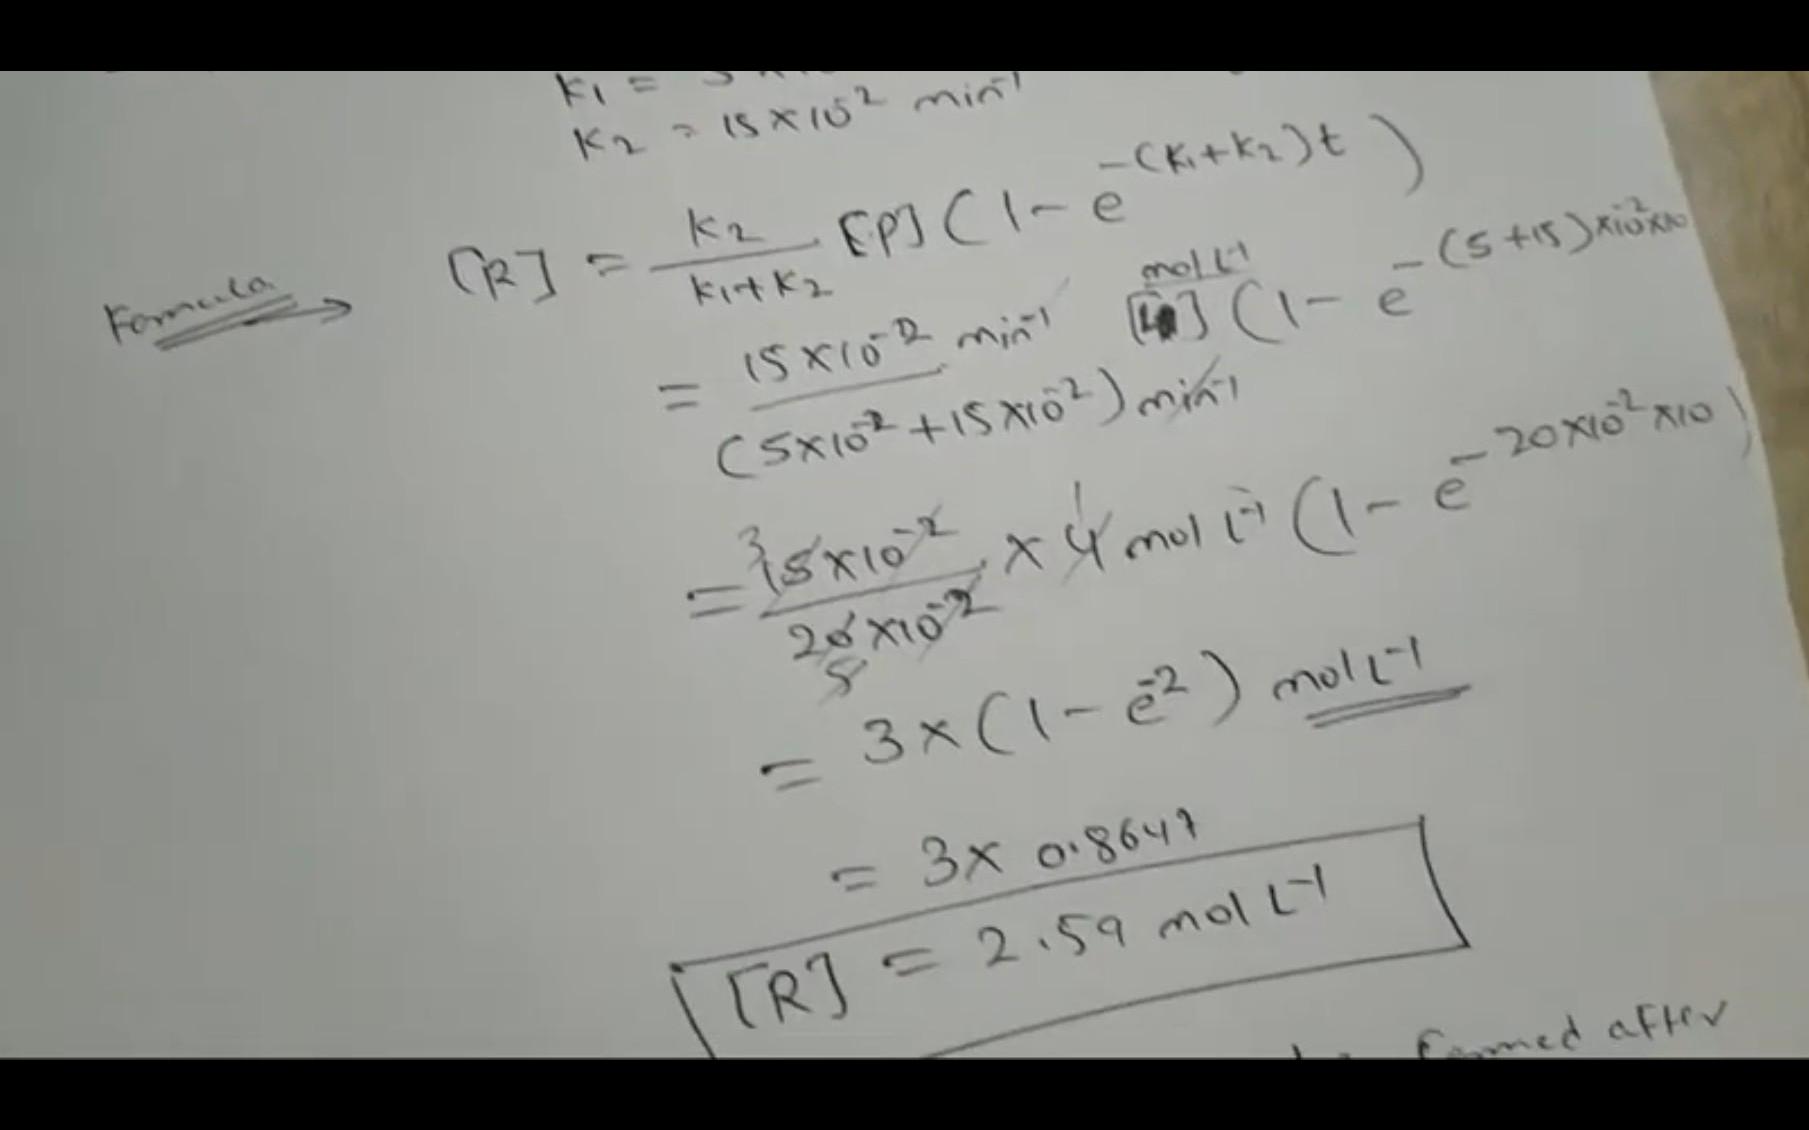 K₁ =
K₂ = 15×10⁻² min⁻¹
Formula → [R] = K₂/(K₁+K₂) [P] (1 - e^-(K₁+K₂)t)
= 15×10⁻² min⁻¹/(5×10⁻²+15×10⁻²) min⁻¹ [4] mol L⁻¹ (1 - e^-(5+15)×10⁻²×10
= 15×10⁻²/20×10⁻² × 4 mol L⁻¹ (1 - e^-20×10⁻²×10)
= 3×(1 - e⁻²) mol L⁻¹
= 3× 0.8647
[R] = 2.59 mol L⁻¹
formed after